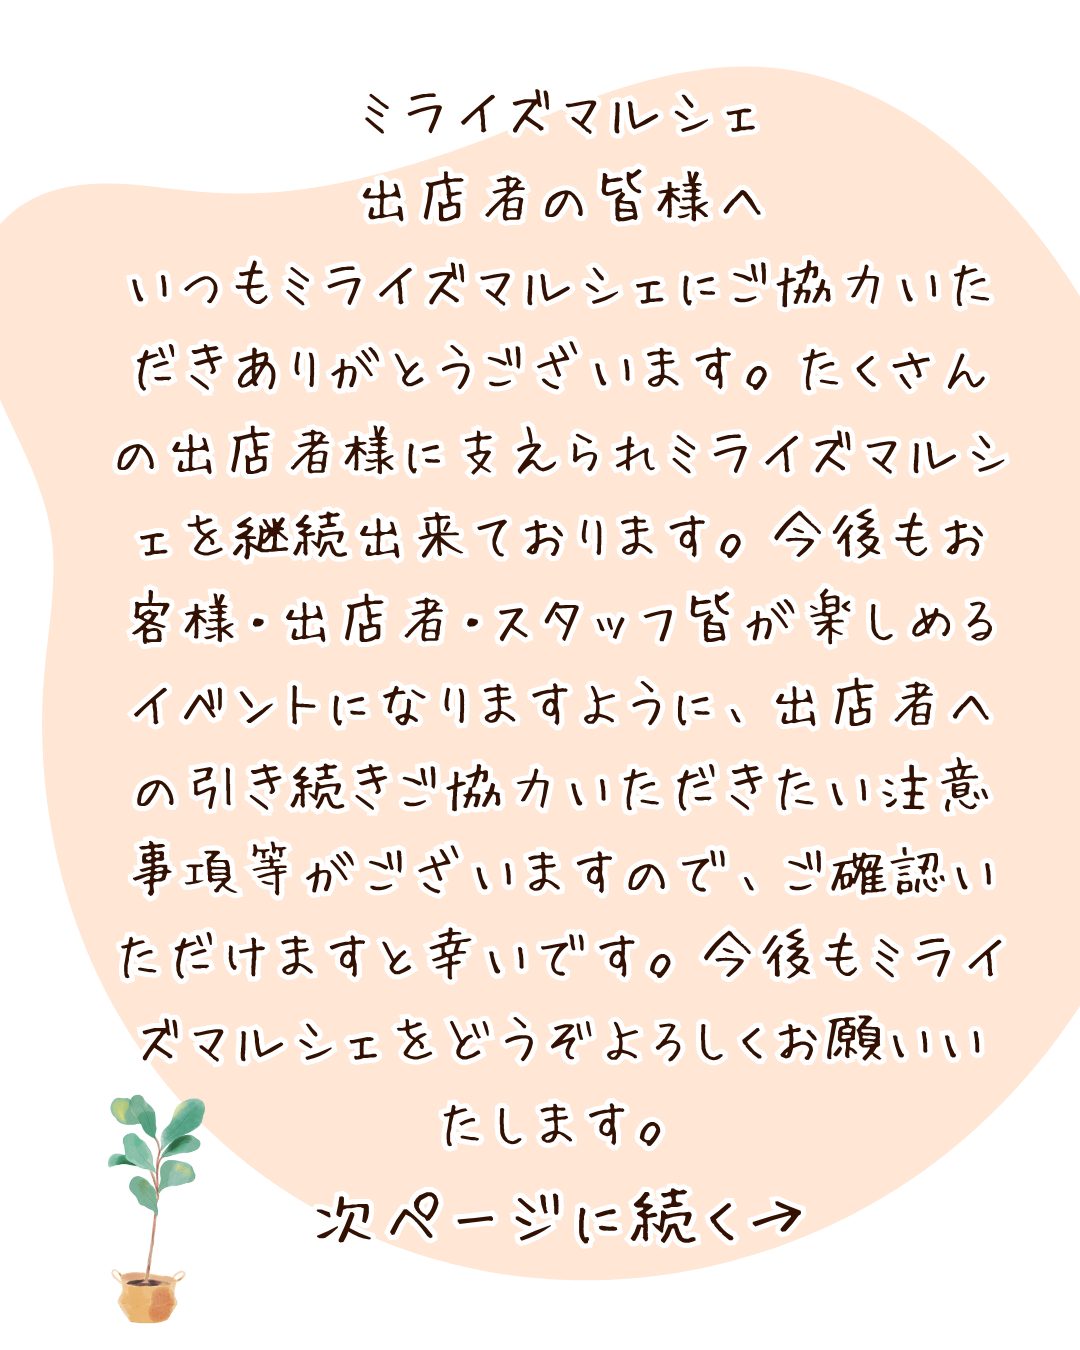 ミライズマルシェ
出店者の皆様へ
いつもミライズマルシェにご協力いた
だきありがとうございます。たくさん
の出店者様に支えられミライズマルシ
ェを継続出来ております。今後もお
客様・出店者・スタッフ皆が楽しめる
イベントになりますように、出店者へ
の引き続きご協力いただきたい注意
事項等がございますので、ご確認い
ただけますと幸いです。今後もミライ
ズマルシェをどうぞよろしくお願いい
たします。
次ページに続く→